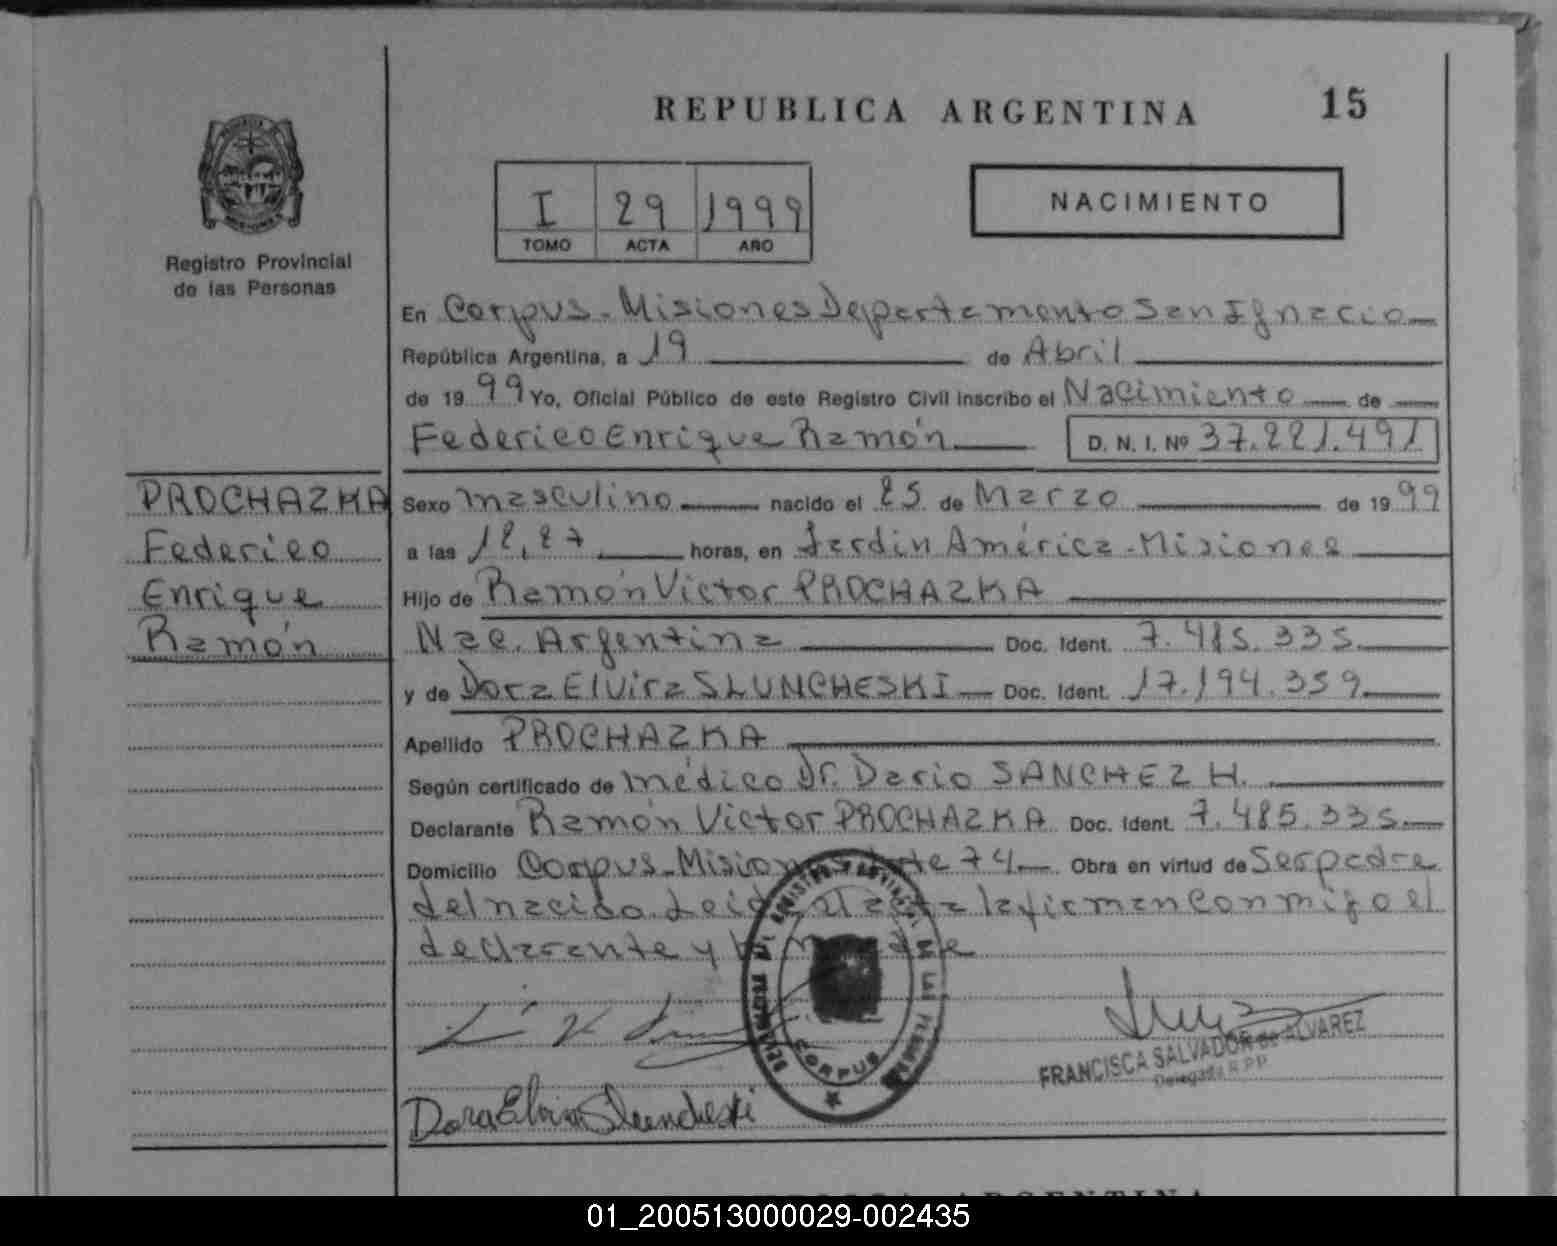 REPUBLICA ARGENTINA
15
Registro Provincial
de las Personas
I 29 1999
TOMO ACTA AÑO
NACIMIENTO
En Corpus - Misiones Departamento San Ignacio
República Argentina, a 19 de Abril
de 19 99 Yo, Oficial Público de este Registro Civil inscribo el Nacimiento de
Federico Enrique Ramón D. N. I. Nº 37.221.491
PROCHAZKA
Federico
Enrique
Ramón
Sexo masculino nacido el 25 de Marzo de 19 99
a las 12,27 horas, en Jardín América - Misiones
Hijo de Ramón Victor PROCHAZKA
Nac. Argentina Doc. Ident. 7.485.335
y de Dora Elvira SLUNCHESKI Doc. Ident. 17.194.359
Apellido PROCHAZKA
Según certificado de médico Dr. Dario SANCHEZ H.
Declarante Ramón Victor PROCHAZKA Doc. Ident. 7.485.335
Domicilio Corpus - Misiones 74 Obra en virtud de Ser padre
del nacido. Leida el acta la firman conmigo el
declarante y
REGISTRO PROVINCIAL DE LAS PERSONAS
CORPUS
Dora Elvira Sluncheski
FRANCISCA SALVADOR de ALVAREZ
Delegada R.P.P.
01_200513000029-002435